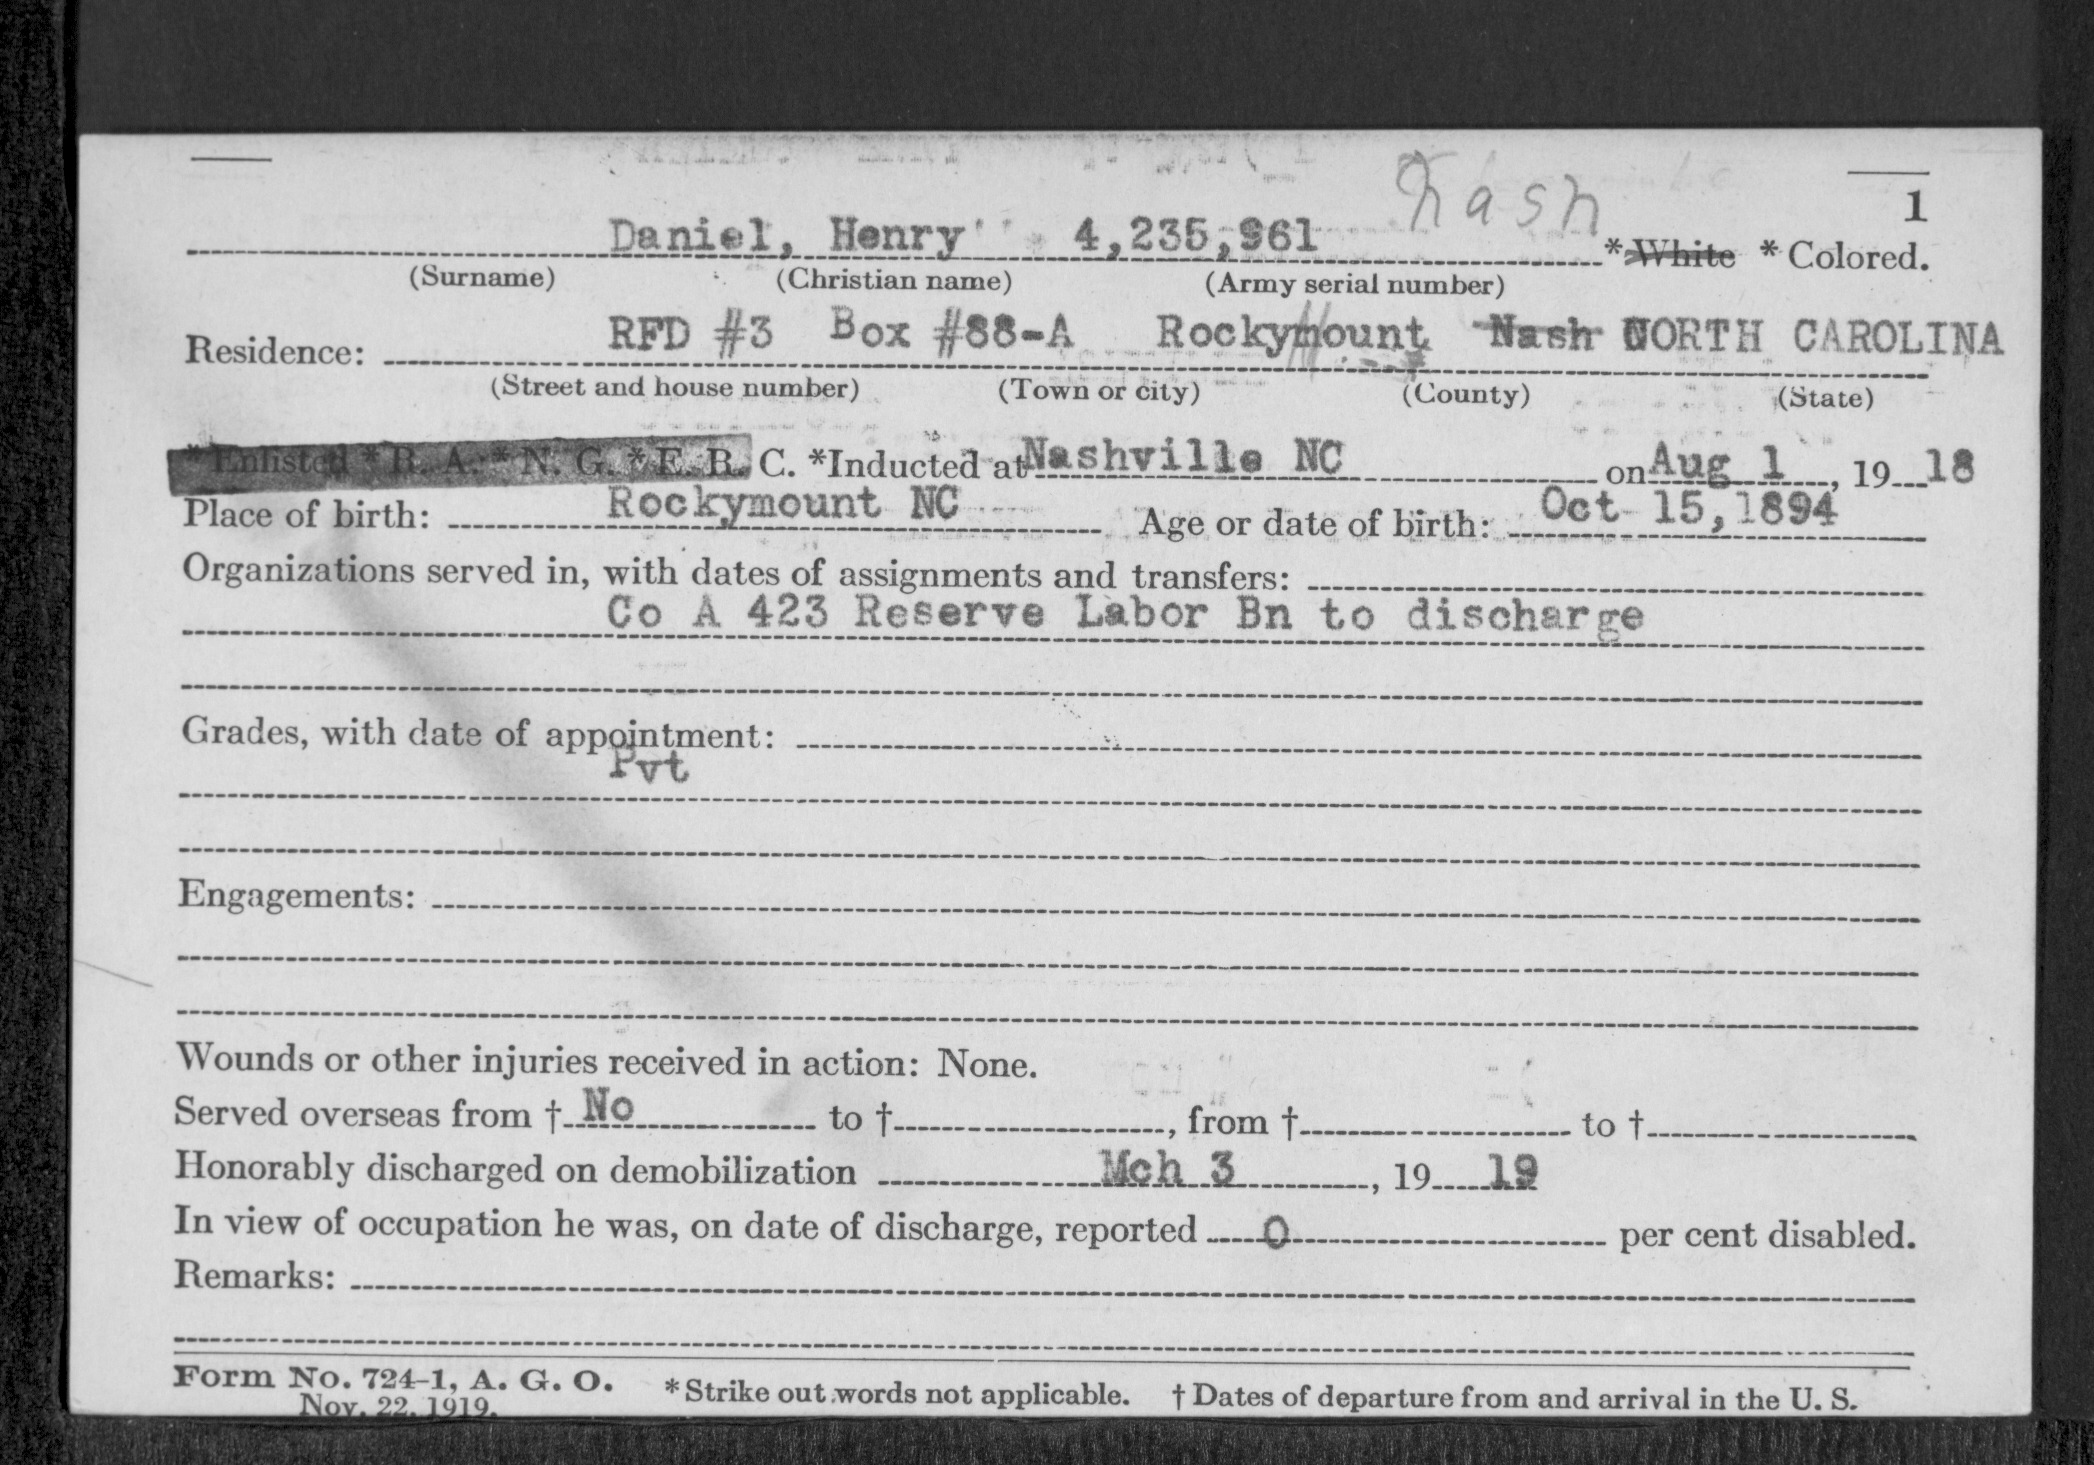 Nash
1
Daniel, Henry 4,235,961 *White *Colored.
(Surname) (Christian name) (Army serial number)
Residence: RFD #3 Box #88-A Rockymount Nash NORTH CAROLINA
(Street and house number) (Town or city) (County) (State)
*Enlisted *R. A. *N. G. *E. R. C. *Inducted at Nashville NC on Aug 1, 19 18
Place of birth: Rockymount NC Age or date of birth: Oct 15,1894
Organizations served in, with dates of assignments and transfers:
Co A 423 Reserve Labor Bn to discharge
Grades, with date of appointment:
Pvt
Engagements:
Wounds or other injuries received in action: None.
Served overseas from † No to †, from † to †
Honorably discharged on demobilization Mch 3, 19 19
In view of occupation he was, on date of discharge, reported 0 per cent disabled.
Remarks:
Form No. 724-1, A. G. O. *Strike out words not applicable. † Dates of departure from and arrival in the U. S.
Nov. 22, 1919.